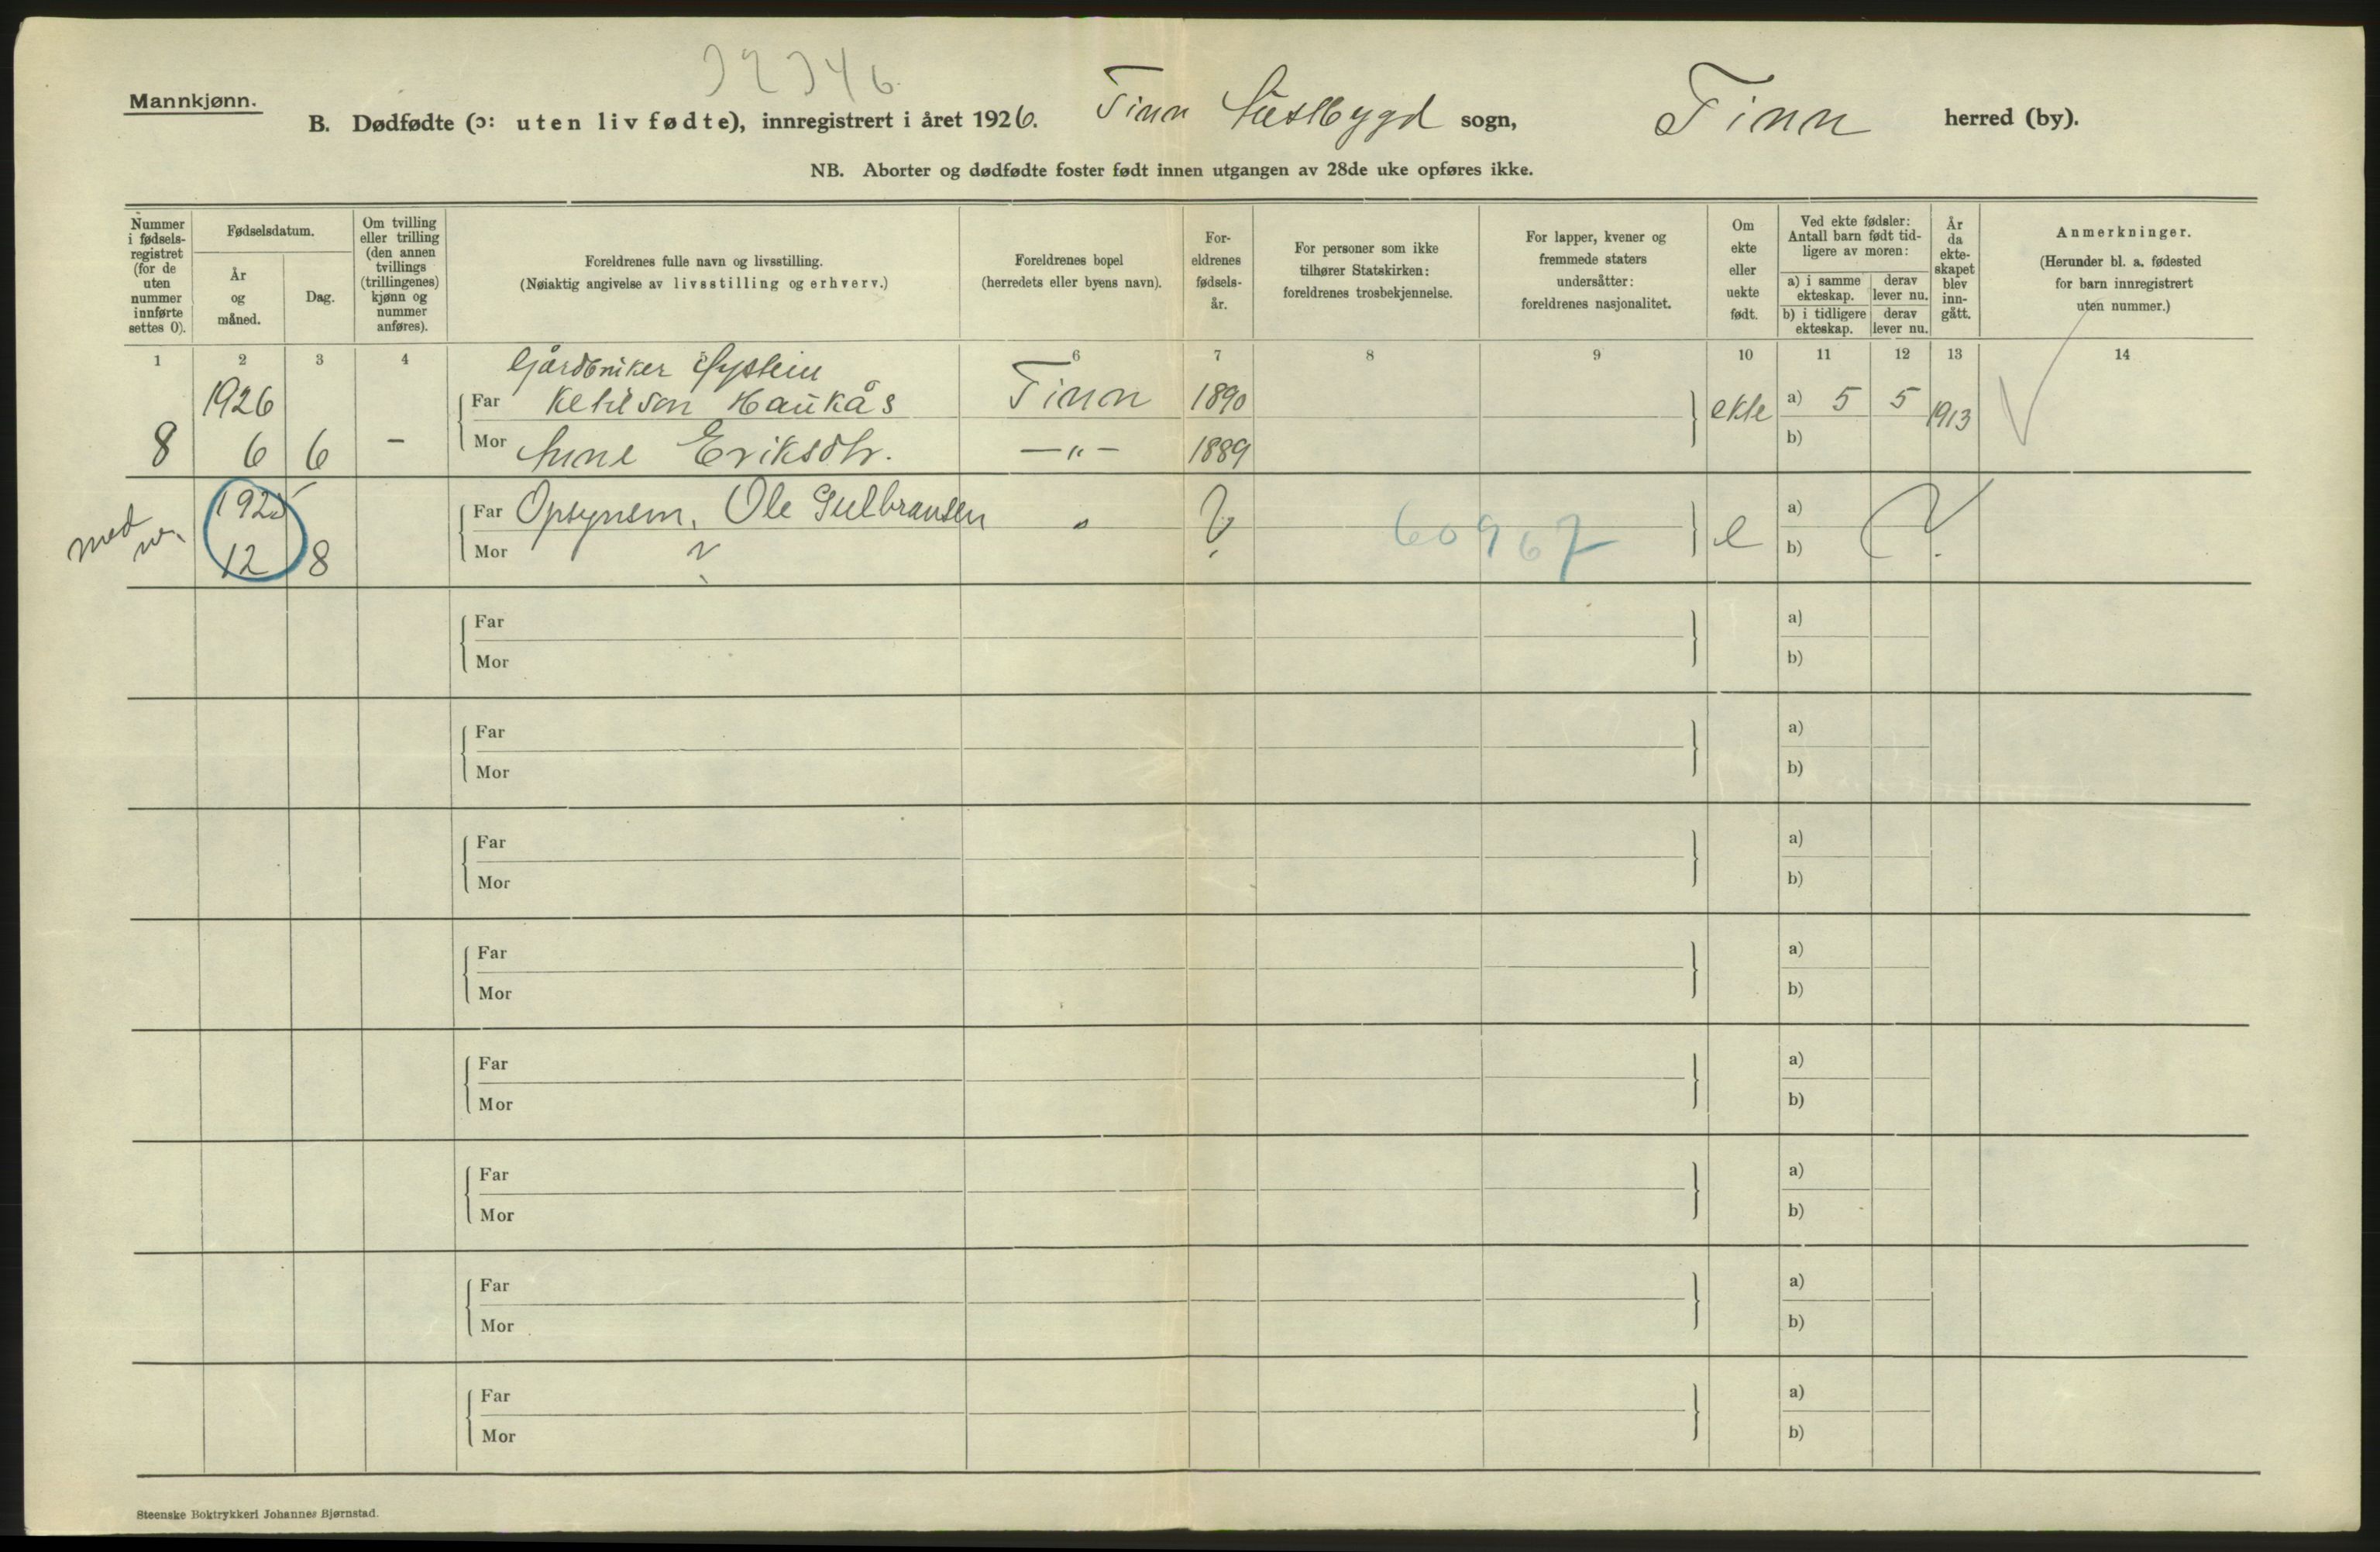 32346.
Mannkjønn.
B. Dødfødte (ɔ: uten liv fødte), innregistrert i året 1926. Tinn Austbygd sogn, Tinn herred (by).
NB. Aborter og dødfødte foster født innen utgangen av 28de uke opføres ikke.
Nummer
i fødsels-
registret
(for de
uten
nummer
innførte
settes 0).
Fødselsdatum.
År
og
måned.
Dag.
Om tvilling
eller trilling
(den annen
tvillings
(trillingenes)
kjønn og
nummer
anføres).
Foreldrenes fulle navn og livsstilling.
(Nøiaktig angivelse av livsstilling og erhverv.)
Foreldrenes bopel
(herredets eller byens navn).
For-
eldrenes
fødsels-
år.
For personer som ikke
tilhører Statskirken:
foreldrenes trosbekjennelse.
For lapper, kvener og
fremmede staters
undersåtter:
foreldrenes nasjonalitet.
Om
ekte
eller
uekte
født.
Ved ekte fødsler:
Antall barn født tid-
ligere av moren:
a) i samme
ekteskap.
derav
lever nu.
b) i tidligere
ekteskap.
derav
lever nu.
År
da
ekte-
skapet
blev
inn-
gått.
Anmerkninger.
(Herunder bl. a. fødested
for barn innregistrert
uten nummer.)
1 2 3 4 6 7 8 9 10 11 12 13 14
Gårdbruker Øystein
1926 Far Ketilson Haukås Tinn 1890 ekte a) 5 5 1913
8 6 6 - Mor Anne Eriksdtr. —"— 1889 b)
1925 Far Opsynsm. Ole Gulbransen " ? 60967 e a) ?
med
12 8 Mor ? b)
Far a)
Mor b)
Far a)
Mor b)
Far a)
Mor b)
Far a)
Mor b)
Far a)
Mor b)
Far a)
Mor b)
Far a)
Mor b)
Far a)
Mor b)
Steenske Boktrykkeri Johannes Bjørnstad.